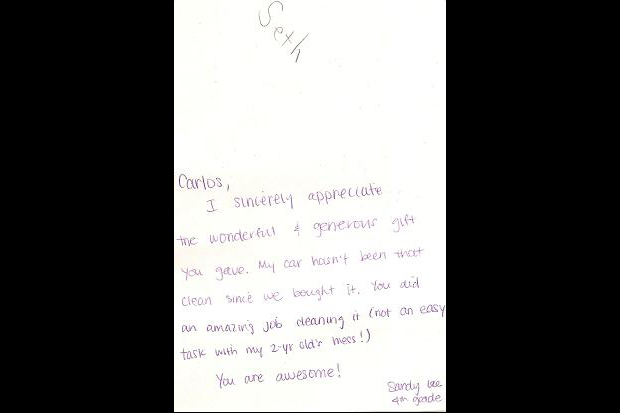 Carlos,
I sincerely appreciate
the wonderful & generous gift
you gave. My car hasn't been that
clean since we bought it. You did
an amazing job cleaning it (not an easy
task with my 2-yr old's mess!)
You are awesome!
Sandy Lee
4th grade